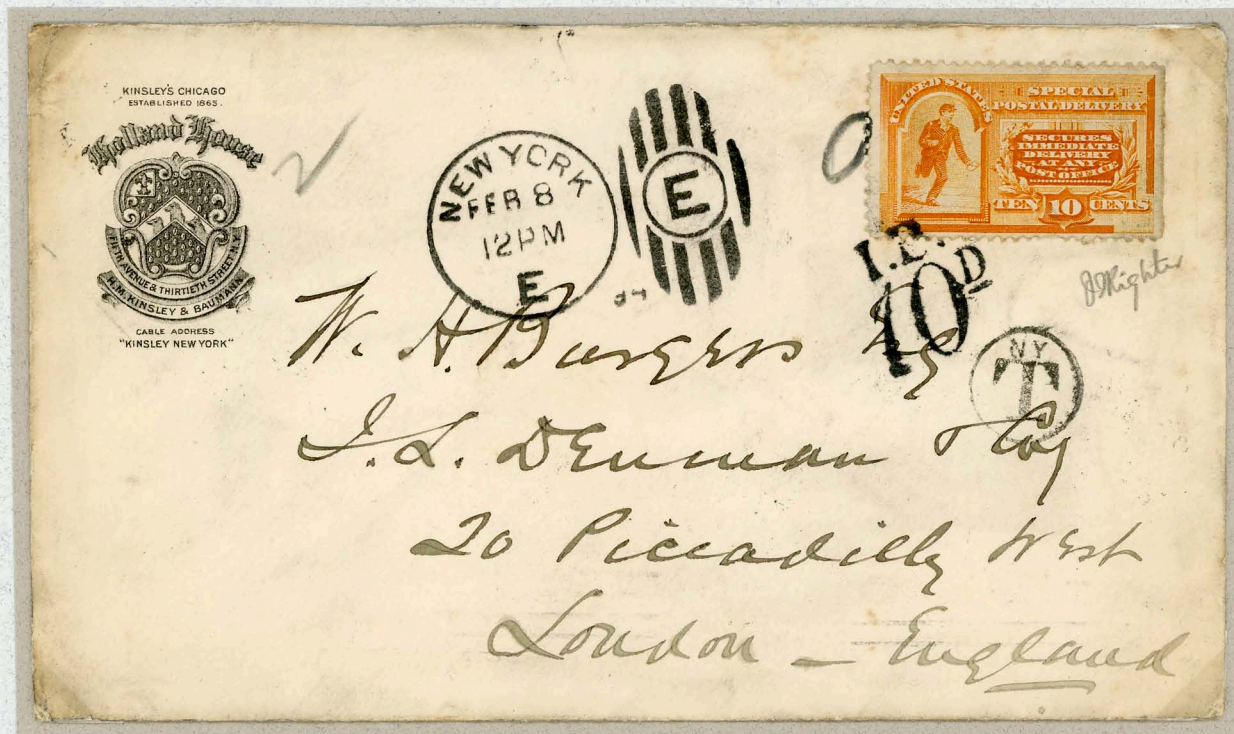 KINSLEY'S CHICAGO
ESTABLISHED 1865.
Holland House
FIFTH AVENUE & THIRTIETH STREET N.Y.
H.M. KINSLEY & BAUMANN
CABLE ADDRESS
"KINSLEY NEW YORK"
NEW YORK
FEB 8
12PM
E
E
UNITED STATES
SPECIAL
POSTAL DELIVERY
SECURES
IMMEDIATE
DELIVERY
AT ANY
POST OFFICE
TEN 10 CENTS
10D
NY
T
W. H. Burgess Esq
J. L. Denman & Coy
20 Piccadilly West
London – England